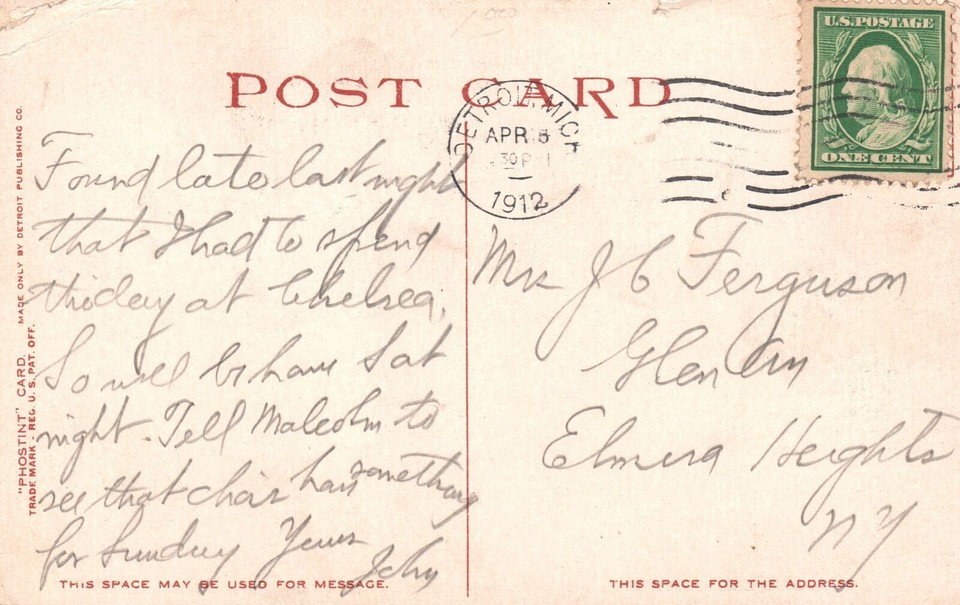 U.S. POSTAGE
ONE CENT
POST CARD
DETROIT, MICH
APR 5
30 P
1912
Found late last night
that I had to spend
this day at Chelsea,
So will be home Sat
night. Tell Malcolm to
see that choir has something
for Sunday Yours
John
Mrs J C Ferguson
Glen
Elmira Heights
NY
"PHOSTINT" CARD. MADE ONLY BY DETROIT PUBLISHING CO.
TRADE MARK - REG. U. S. PAT. OFF.
THIS SPACE MAY BE USED FOR MESSAGE.
THIS SPACE FOR THE ADDRESS.